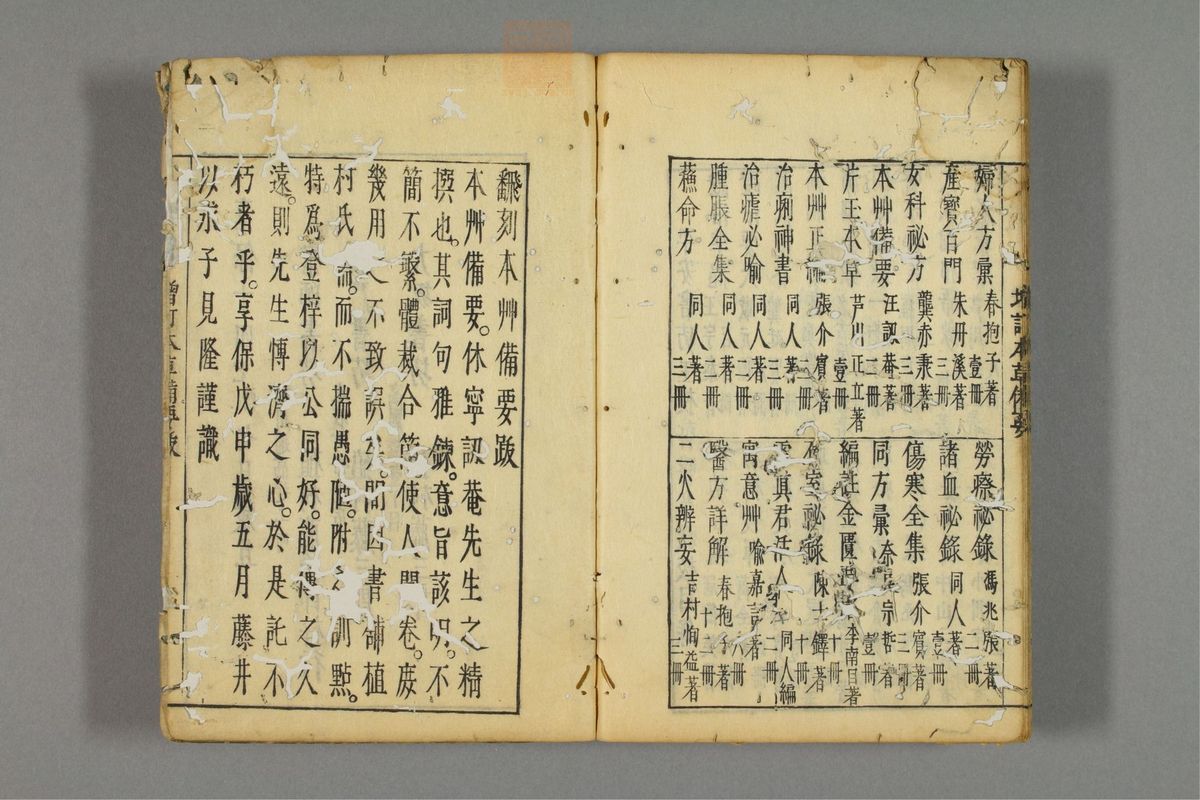 婦人方彙 春抱子著 壹冊
產寶百門 朱丹溪著 三冊
女科祕方 龔赤秉著 三冊
本艸備要 汪訒菴著 二冊
芹王本草 芦川正立著 壹冊
本艸正 張介賓著 二冊
治痢神書 同人著 二冊
治瘧必喻 同人著 二冊
腫脹全集 同人著 二冊
蘓命方 同人著 三冊
勞瘵祕錄 馮兆張著 二冊
諸血祕錄 同人著 壹冊
傷寒全集 張介賓著 三冊
同方彙 奈宗哲著 壹冊
編註金匱 李南目著 十冊
石室祕錄 陳士鐸著 十冊
真君活人 同人編 二冊
寓意艸 喻嘉言著 八冊
醫方詳解 春抱子著 十二冊
二火辨妄 吉村恂益著 三冊
增訂本草備要
飜刻本艸備要跋
本艸備要。休寧訒菴先生之精
撰也。其詞句雅鍊。意旨該明。不
簡不繁。體裁合節。使人開卷。庶
幾用之不致誤矣。間因書舗植
村氏請。而不揣愚陋。附以訓點。
特爲登梓以公同好。能傳之久
遠。則先生博濟之心。於是託不
朽者乎。享保戊申歲五月藤井
以求子見隆謹識
增訂本草備要跋